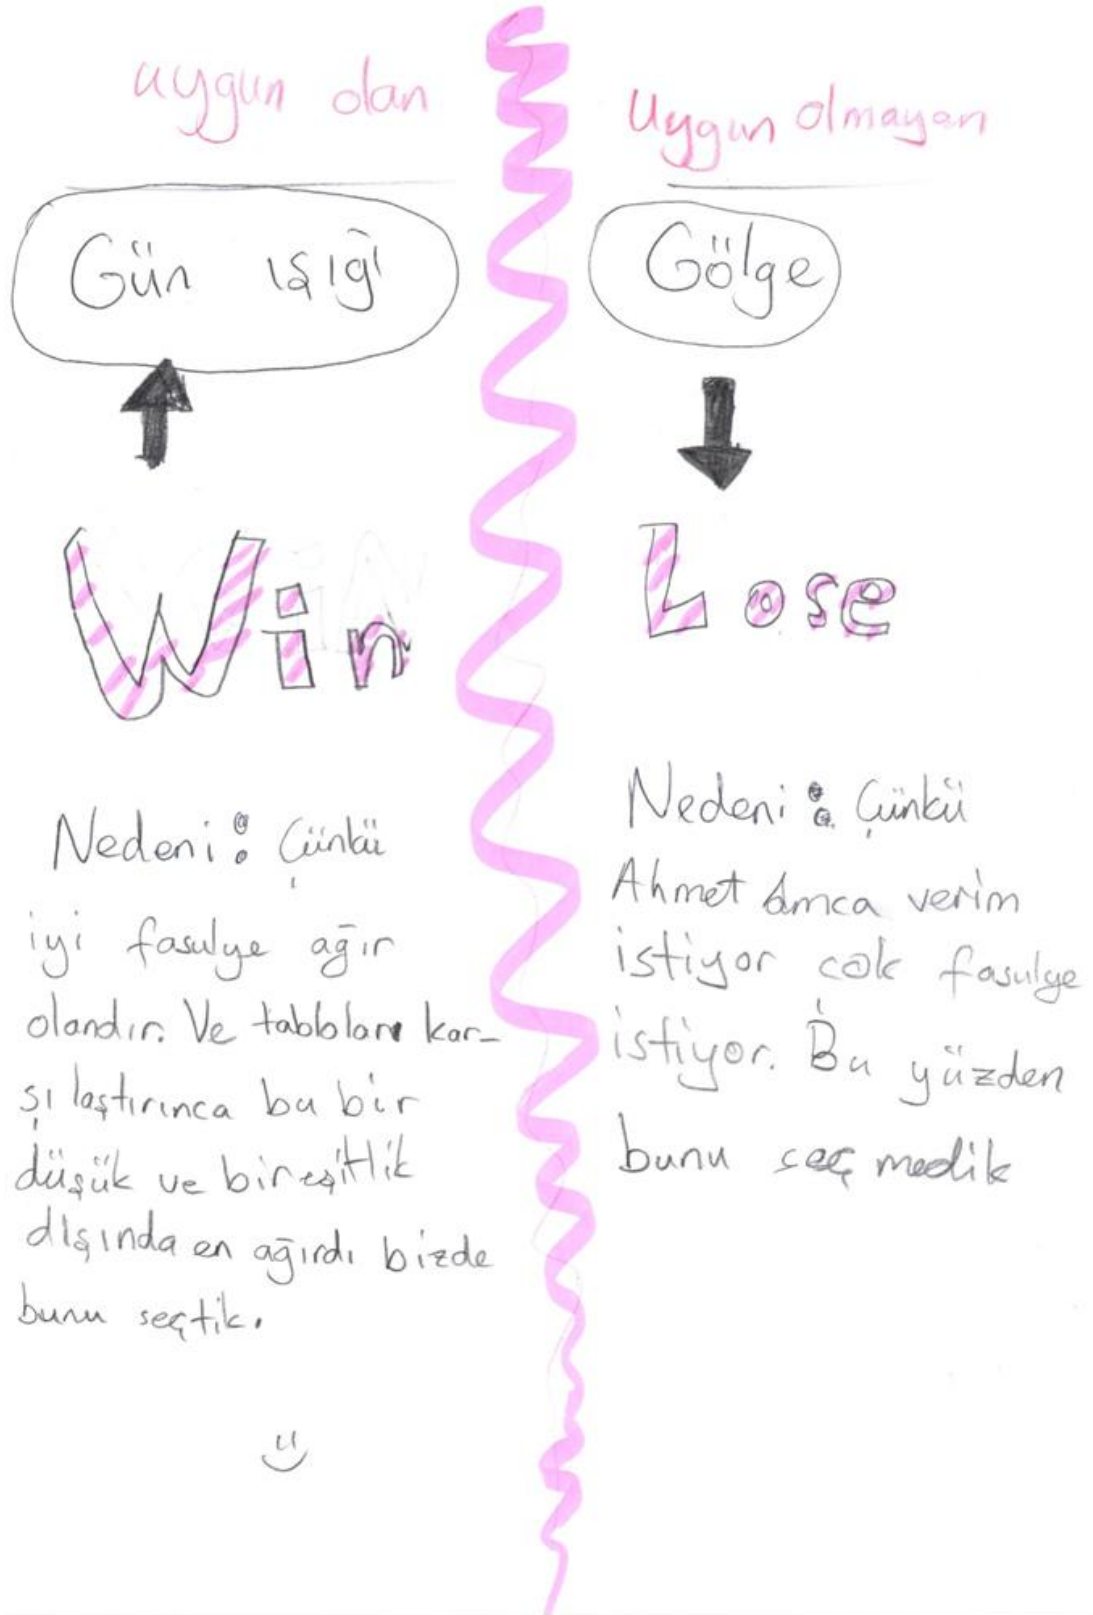 uygun olan
Gün ışığı
Win
Nedeni: Çünkü
iyi fasulye ağır
olandır. Ve tabloları kar-
şılaştırınca bu bir
düşük ve bir eşitlik
dışında en ağırdı bizde
bunu seçtik.
Uygun olmayan
Gölge
Lose
Nedeni: Çünkü
Ahmet Amca verim
istiyor çok fasulye
istiyor. Bu yüzden
bunu seçmedik